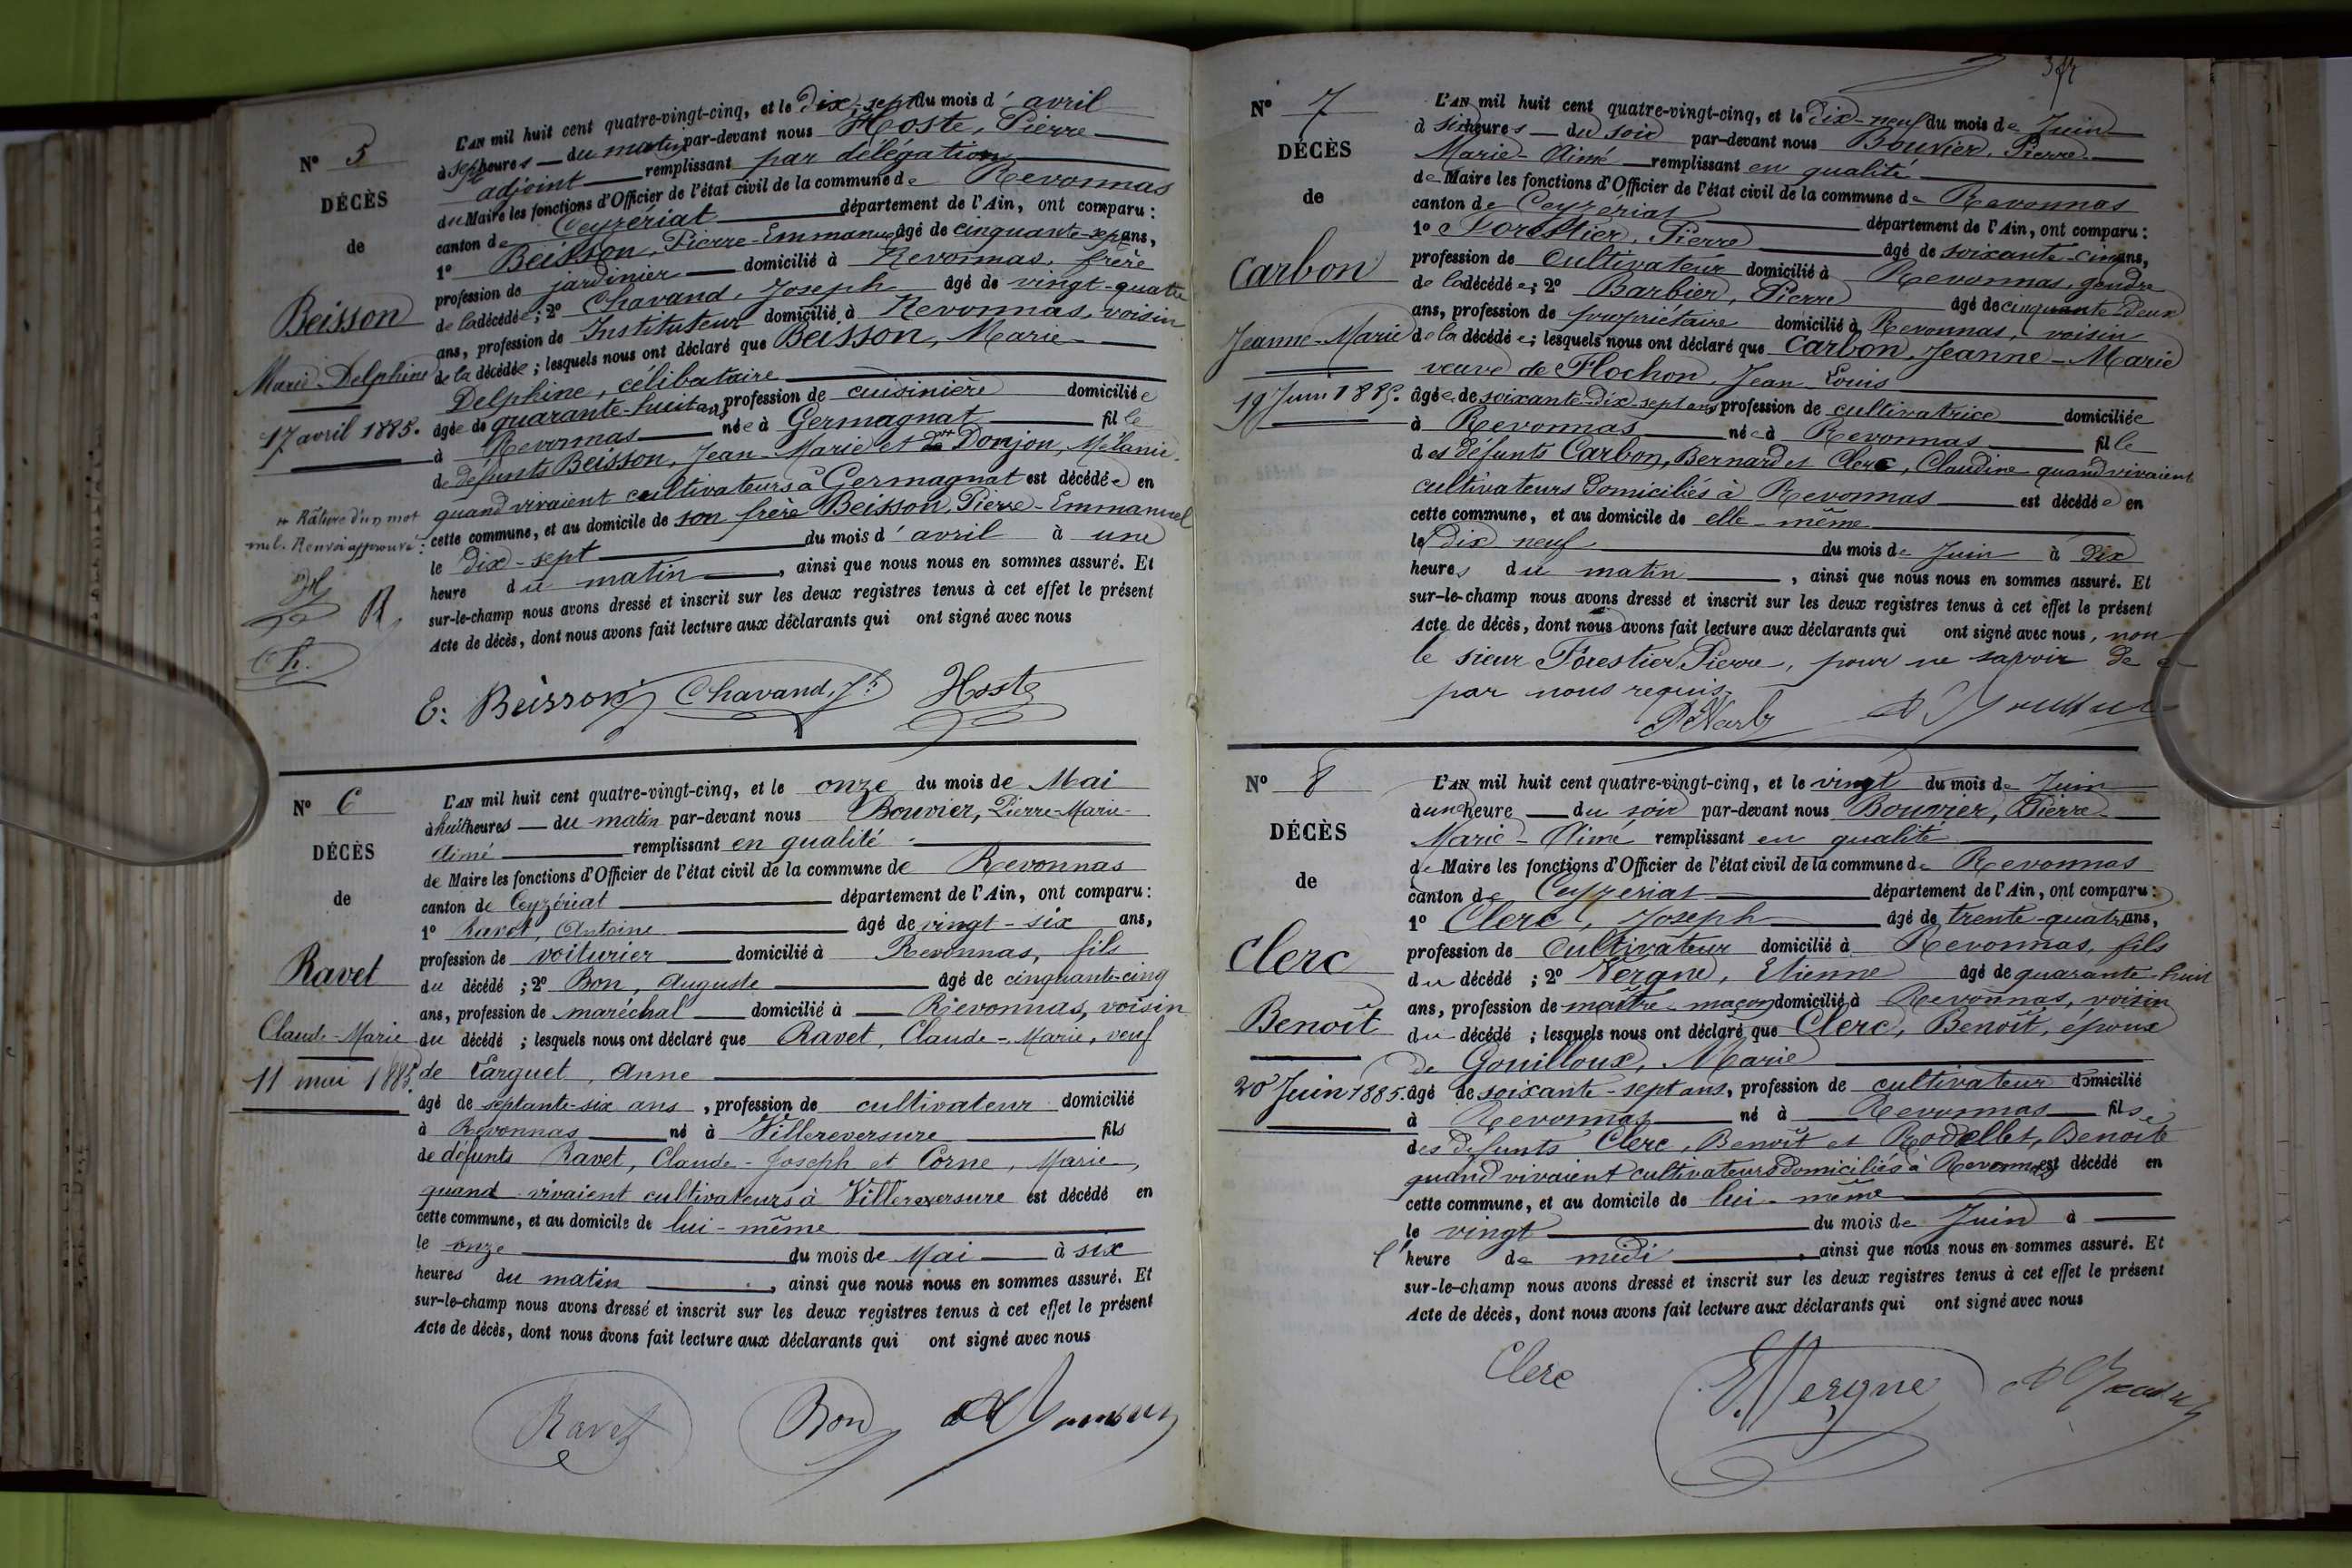 N° 5
DÉCÈS
de
Beisson
Marie-Delphine
17 avril 1885.
Râture d'un mot
nul. Renvoi approuvé :
H
R
Ch.
L'AN mil huit cent quatre-vingt-cinq, et le dix-sept du mois d'avril
à sept heures du matin par-devant nous Hoste, Pierre
adjoint remplissant par délégation
du Maire les fonctions d'Officier de l'état civil de la commune de Revonnas
canton de Ceyzériat département de l'Ain, ont comparu :
1° Beisson, Pierre-Emmanuel âgé de cinquante-sept ans,
profession de jardinier domicilié à Revonnas, frère
de la décédée ; 2° Chavand, Joseph âgé de vingt-quatre
ans, profession de Instituteur domicilié à Revonnas, voisin
de la décédée ; lesquels nous ont déclaré que Beisson, Marie-
Delphine, célibataire
âgée de quarante-huit ans, profession de cuisinière domiciliée
à Revonnas née à Germagnat fille
de défunts Beisson, Jean-Marie et Donjon, Mélanie
quand vivaient cultivateurs à Germagnat est décédée en
cette commune, et au domicile de son frère Beisson, Pierre-Emmanuel
le dix-sept du mois d'avril à une
heure du matin, ainsi que nous nous en sommes assuré. Et
sur-le-champ nous avons dressé et inscrit sur les deux registres tenus à cet effet le présent
Acte de décès, dont nous avons fait lecture aux déclarants qui ont signé avec nous
E. Beisson Chavand, Jh Hoste
N° 6
DÉCÈS
de
Ravet
Claude-Marie
11 mai 1885.
L'AN mil huit cent quatre-vingt-cinq, et le onze du mois de Mai
à huit heures du matin par-devant nous Bouvier, Pierre-Marie-
Aimé remplissant en qualité
de Maire les fonctions d'Officier de l'état civil de la commune de Revonnas
canton de Ceyzériat département de l'Ain, ont comparu :
1° Ravet, Antoine âgé de vingt-six ans,
profession de voiturier domicilié à Revonnas, fils
du décédé ; 2° Bon, Auguste âgé de cinquante-cinq
ans, profession de maréchal domicilié à Revonnas, voisin
du décédé ; lesquels nous ont déclaré que Ravet, Claude-Marie, veuf
de Larguet, Anne
âgé de septante-six ans, profession de cultivateur domicilié
à Revonnas né à Villereversure fils
de défunts Ravet, Claude-Joseph et Corne, Marie,
quand vivaient cultivateurs à Villereversure est décédé en
cette commune, et au domicile de lui-même
le onze du mois de Mai à six
heures du matin, ainsi que nous nous en sommes assuré. Et
sur-le-champ nous avons dressé et inscrit sur les deux registres tenus à cet effet le présent
Acte de décès, dont nous avons fait lecture aux déclarants qui ont signé avec nous
Ravet Bon
N° 7
DÉCÈS
de
Carbon
Jeanne-Marie
19 Juin 1885.
L'AN mil huit cent quatre-vingt-cinq, et le dix-neuf du mois de Juin
à six heures du soir par-devant nous Bouvier, Pierre-
Marie-Aimé remplissant en qualité
de Maire les fonctions d'Officier de l'état civil de la commune de Revonnas
canton de Ceyzériat département de l'Ain, ont comparu :
1° Forestier, Pierre âgé de soixante-cinq ans,
profession de Cultivateur domicilié à Revonnas, gendre
de la décédée ; 2° Barbier, Pierre âgé de cinquante-deux
ans, profession de propriétaire domicilié à Revonnas, voisin
de la décédée ; lesquels nous ont déclaré que Carbon, Jeanne-Marie
veuve de Flochon, Jean Louis
âgée de soixante-dix-sept ans profession de cultivatrice domiciliée
à Revonnas née à Revonnas fille
des défunts Carbon, Bernard et Clerc, Claudine quand vivaient
cultivateurs domiciliés à Revonnas est décédée en
cette commune, et au domicile de elle-même
le dix neuf du mois de Juin à dix
heures du matin, ainsi que nous nous en sommes assuré. Et
sur-le-champ nous avons dressé et inscrit sur les deux registres tenus à cet effet le présent
Acte de décès, dont nous avons fait lecture aux déclarants qui ont signé avec nous, non
le sieur Forestier Pierre, pour ne savoir de ce
par nous requis.
N° 8
DÉCÈS
de
Clerc
Benoît
20 Juin 1885.
L'AN mil huit cent quatre-vingt-cinq, et le vingt du mois de Juin
à une heure du soir par-devant nous Bouvier, Pierre-
Marie-Aimé remplissant en qualité
de Maire les fonctions d'Officier de l'état civil de la commune de Revonnas
canton de Ceyzériat département de l'Ain, ont comparu :
1° Clerc, Joseph âgé de trente-quatre ans,
profession de Cultivateur domicilié à Revonnas, fils
du décédé ; 2° Vergne, Etienne âgé de quarante-huit
ans, profession de maître-maçon domicilié à Revonnas, voisin
du décédé ; lesquels nous ont déclaré que Clerc, Benoît, époux
de Gouilloux, Marie
âgé de soixante-sept ans, profession de cultivateur domicilié
à Revonnas né à Revonnas fils
des défunts Clerc, Benoît et Rodellet, Benoite
quand vivaient cultivateurs domiciliés à Revonnas est décédé en
cette commune, et au domicile de lui-même
le vingt du mois de Juin à
l'heure de midi, ainsi que nous nous en sommes assuré. Et
sur-le-champ nous avons dressé et inscrit sur les deux registres tenus à cet effet le présent
Acte de décès, dont nous avons fait lecture aux déclarants qui ont signé avec nous
Clerc E. Vergne